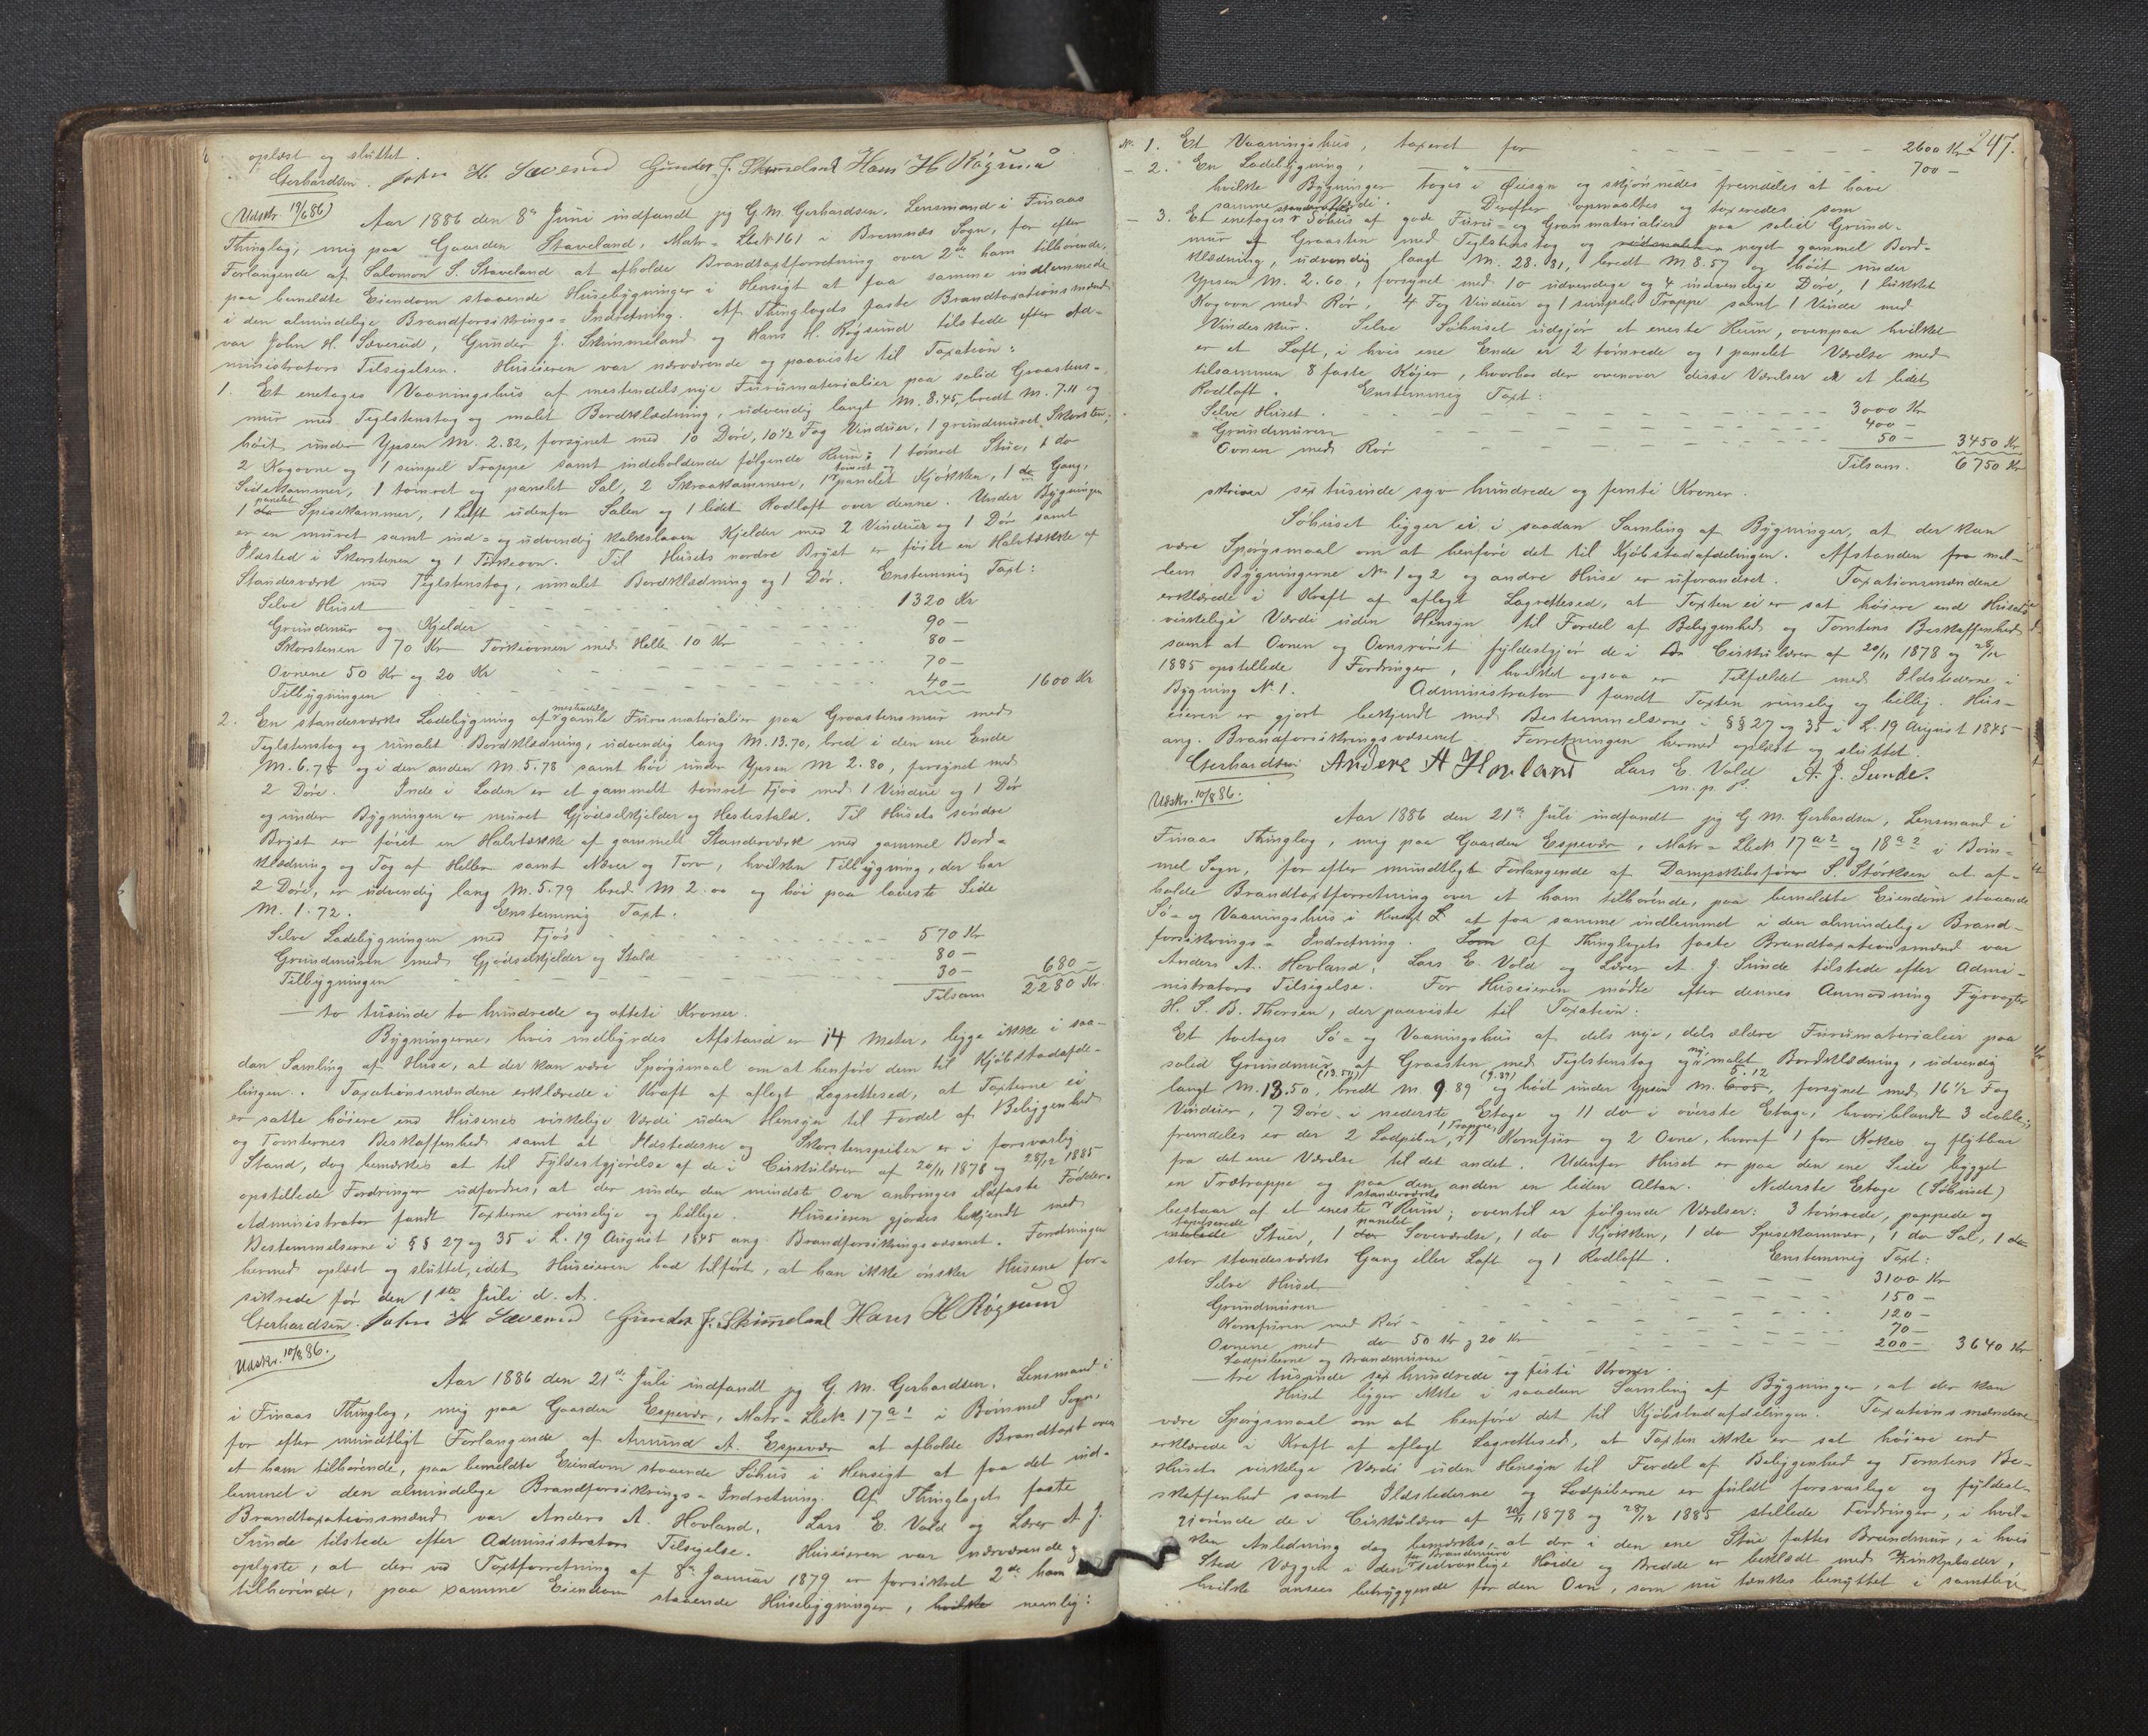 oplæst og sluttet.
Gerhardsen. John H. Sæverud Gunder J. Skimmeland Hans H Røgsund
(Udskr. 19/6 86)
Aar 1886 den 8de Juni indfandt jeg G. M. Gerhardsen, Lensmand i Finaas
Thinglag, mig paa Gaarden Staveland, Matr= Løbe No 161 i Bremnæs Sogn, for efter
Forlangende af Salomon S. Staveland at afholde Brandtaxtforretning over 2de ham tilhørende,
paa bemeldte Eiendom staaende Husebygninger i Hensigt at faa samme indlemmede
i den almindelige Brandforsikrings= Indretning. Af Thinglagets faste Brandtaxationsmænd
var John H. Sæverud, Gunder J. Skimmeland og Hans H. Røgsund tilstede efter Ad-
ministrators Tilsigelsen. Huseieren var nærværende og paaviste til Taxation:
1. Et enetages Vaaningshus af mestendels nye Furumaterialier paa solid Graastens-
mur med Teglstenstag og malet Bordklædning, udvendig langt M. 8.45, bredt M. 7.11 og
høit under Ypsen M. 2.82, forsynet med 10 Døre, 10 1/2 Fag Vinduer, 1 grundmuret Skorsten,
2 Kogovne og 1 simpel Trappe samt indeholdende følgende Rum: 1 tømret Stue, 1 do
Sidekammer, 1 tømret og panelet Sal, 2 Skraakammere, 1 tømret og panelet Kjøkken, 1 do Gang,
1 do panelet Spisekammer, 1 Loft udenfor Salen og 1 lidet Rodloft over denne. Under Bygningen
er en muret samt ind= og udvendig kalkslaaen Kjelder med 2 Vinduer og 1 Dør samt
Ildsted i Skorstenen og 1 Tørkeovn. Til Husets nordre Bryst er føiet en Halvtække af
Standerværk med Teglstenstag, umalet Bordklædning og 1 Dør. Enstemmig Taxt:
Selve Huset 1320 Kr
Grundmur og Kjelder 90 —
Skorstenen 70 Kr Tørkeovnen med Helle 10 Kr 80 —
Ovnene 50 Kr og 20 Kr 70 —
Tilbygningen 40 — 1600 Kr
2. En standerværks Ladebygning af mestendels gamle Furumaterialier paa Graastensmur med
Teglstenstag og umalet Bordklædning, udvendig lang M. 13.70, bred i den ene Ende
M. 6.78 og i den anden M. 5.78 samt høi under Ypsen M 2.80, forsynet med
2 Døre. Inde i Laden er et gammelt tømret Fjøs med 1 Vindue og 1 Dør
og under Bygningen er muret Gjødselkjelder og Hestestald. Til Husets søndre
Bryst er føiet en Halvtække af gammelt Standerværk med gammel Bord-
klædning og Tag af Heller samt Næver og Torv, hvilken Tilbygning, der har
2 Døre, er udvendig lang M. 5.79 bred M 2.00 og høi paa laveste Side
M. 1.72. Enstemmig Taxt:
Selve Ladebygningen med Fjøs 570 Kr
Grundmuren med Gjødselkjelder og Stald 80 —
Tilbygningen 30 — 680 —
Tilsam 2280 Kr.
— to tusinde to hundrede og otteti Kroner.
Bygningerne, hvis indbyrdes Afstand er 14 Meter, ligge ikke i saa-
dan Samling af Huse, at der kan være Spørgsmaal om at henføre dem til Kjøbstadafde-
lingen. Taxationsmændene erklærede i Kraft af aflagt Lagrettesed, at Taxterne ei
er satte høiere end Husenes virkelige Værdi uden Hensyn til Fordel af Beliggenhed
og Tomternes Beskaffenhed samt at Ildstederne og Skorstenspiben er i forsvarlig
Stand, dog bemærkes at til Fyldestgjørelse af de i Cirkulærer af 20/11 1878 og 28/12 1885
opstillede Fordringer udfordres, at der under den mindste Ovn anbringes ildfaste Fødder.
Administrator fandt Taxterne rimelige og billige. Huseieren gjordes bekjendt med
Bestemmelserne i §§ 27 og 35 i L. 19 August 1845 ang. Brandforsikringsvæsenet. Forretningen
hermed oplæst og sluttet, idet Huseieren bad tilført, at han ikke ønsker Husene for-
sikrede før den 1ste Juli d. A.
Gerhardsen. John H. Sæverud Gunder J. Skimmeland Hans H Røgsund
Udskr. 10/8 86.
Aar 1886 den 21de Juli indfandt jeg G. M. Gerhardsen, Lensmand i
i Finaas Thinglag, mig paa Gaarden Espevær, Matr= Løbe No 17 a 1 i Bømmel Sogn,
for efter mundtligt Forlangende af Amund A. Espevær at afholde Brandtaxt over
et ham tilhørende, paa bemeldte Eiendom staaende Søhus i Hensigt at faa det ind-
lemmet i den almindelige Brandforsikrings= Indretning. Af Thinglagets faste
Brandtaxationsmænd var Anders A. Hovland, Lars E. Vold og Lærer A. J.
Sunde tilstede efter Administrators Tilsigelse. Huseieren var nærværende og
oplyste, at der ved Taxtforretning af 8de Januar 1879 er forsikret 2de ham
tilhørende, paa samme Eiendom staaende Husebygninger, hvilke nemlig:
247.
No. 1. Et Vaaningshus, taxeret for 2600 Kr
— 2. En Ladebygning, — " — 700 —
hvilke Bygninger toges i Øiesyn og skjønnedes fremdeles at have
samme Værdi. Derefter opmaaltes og taxeredes som
— 3. Et enetages standerværks Søhus af gode Furu= og Granmaterialier paa solid Grund-
mur af Graasten med Teglstenstag og noget gammel Bord-
klædning, udvendig langt M. 28.81, bredt M 8.57 og høit under
Ypsen M. 2.60, forsynet med 10 udvendige og 4 indvendige Døre, 1 lukket
Kogovn med Rør, 4 Fag Vinduer og 1 simpel Trappe samt 1 Vinde med
Vindeskur. Selve Søhuset udgjør et eneste Rum, ovenpaa hvilket
er et Loft, i hvis ene Ende er 2 tømrede og 1 panelet Værelse med
tilsammen 8 faste Køjer, hvorhos der ovenover disse Værelser er et lidet
Rodloft. Enstemmig Taxt:
Selve Huset 3000 Kr
Grundmuren 400 —
Ovnen med Rør 50 — 3450 Kr
Tilsam. 6750 Kr
skriver sex tusinde syv hundrede og femti Kroner.
Søhuset ligger ei i saadan Samling af Bygninger, at der kan
være Spørgsmaal om at henføre det til Kjøbstadafdelingen. Afstanden fra mel-
lem Bygningerne No 1 og 2 og andre Huse er uforandret. Taxationsmændene
erklærede i Kraft af aflagt Lagrettesed, at Taxten ei er sat høiere end Husets
virkelige Værdi uden Hensyn til Fordel af Beliggenhed og Tomtens Beskaffenhed
samt at Ovnen og Ovnsrøret fyldestgjør de i Cirkulærer af 20/11 1878 og 28/12
1885 opstillede Fordringer, hvilket ogsaa er Tilfældet med Ildstederne i
Bygning No 1. Administrator fandt Taxten rimelig og billig. Hus-
eieren er gjort bekjendt med Bestemmelserne i §§ 27 og 35 i L. 19 August 1845
ang. Brandforsikringsvæsenet. Forretningen hermed oplæst og sluttet.
Gerhardsen Anders A Hovland Lars E. Vold A. J. Sunde.
m. p. P.
Udskr. 10/8 86.
Aar 1886 den 21de Juli indfandt jeg G. M. Gerhardsen, Lensmand i
Finaas Thinglag, mig paa Gaarden Espevær, Matr= Løbe No 17 a 2 og 18 a 2 i Bøm-
mel Sogn, for efter mundtligt Forlangende af Dampskibsfører S. Størksen at af-
holde Brandtaxtforretning over et ham tilhørende, paa bemeldte Eiendom staaende
Sø= og Vaaningshus i Hensigt at faa samme indlemmet i den almindelige Brand-
forsikrings= Indretning. Som Af Thinglagets faste Brandtaxationsmænd var
Anders A. Hovland, Lars E. Vold og Lærer A. J. Sunde tilstede efter Admi-
nistrators Tilsigelse. For Huseieren mødte efter dennes Anmodning Fyrvogter
H. S. B. Thorsen, der paaviste til Taxation:
Et toetages Sø= og Vaaningshus af dels nye, dels ældre Furumaterialier paa
solid Grundmur af Graasten med Teglstenstag og ny malet Bordklædning, udvendig
langt M. 13.50, bredt M. 9.89 og høit under Ypsen M. 6.05 5.12, forsynet med 16 1/2 Fag
Vinduer, 7 Døre i nederste Etage og 11 do i øverste Etage, hvoriblandt 3 doble;
fremdeles er der 2 Lodpiber, 1 Trappe, 1 Komfur og 2 Ovne, hvoraf 1 for Kokes og flytbar
fra det ene Værelse til det andet. Udenfor Huset er paa den ene Side bygget
en Trætrappe og paa den anden en liden Altan. Nederste Etage (Søhuset)
bestaar af et eneste standerværks Rum; oventil er følgende Værelser: 3 tømrede, pappede og
malede tapetserede Stuer, 1 do panelet Soveværelse, 1 do Kjøkken, 1 do Spisekammer, 1 do Sal, 1 do
stor standerværks Gang eller Loft og 1 Rodloft. Enstemmig Taxt:
Selve Huset 3100 Kr
Grundmuren 150 —
Komfuren med Rør 120 —
Ovnene med do 50 Kr og 20 Kr 70 —
Lodpiberne og Brandmurene 200 — 3640 Kr
— tre tusinde sex hundrede og firti Kroner.
Huset ligger ikke i saadan Samling af Bygninger, at der kan
være Spørgsmaal om at henføre det til Kjøbstadafdelingen. Taxationsmændene
erklærede i Kraft af aflagt Lagrettesed, at Taxten ikke er sat høiere end
Husets virkelige Værdi uden Hensyn til Fordel af Beliggenhed og Tomtens Be-
skaffenhed samt Ildstederne og Lodpiberne er fuldt forsvarlige og fyldest-
gjørende de i Cirkulærer af 20/11 1878 og 28/12 1885 stillede Fordringer, i hvil-
ken Anledning dog bemærkes, at der i den ene Stue fattes Brandmur, i hvis
Sted Væggen i den for Brandmure sedvanlige Høide og Bredde er beklædt med Zinkplader,
hvilke ansees betryggende for den Ovn, som nu tænkes benyttet i samtlige